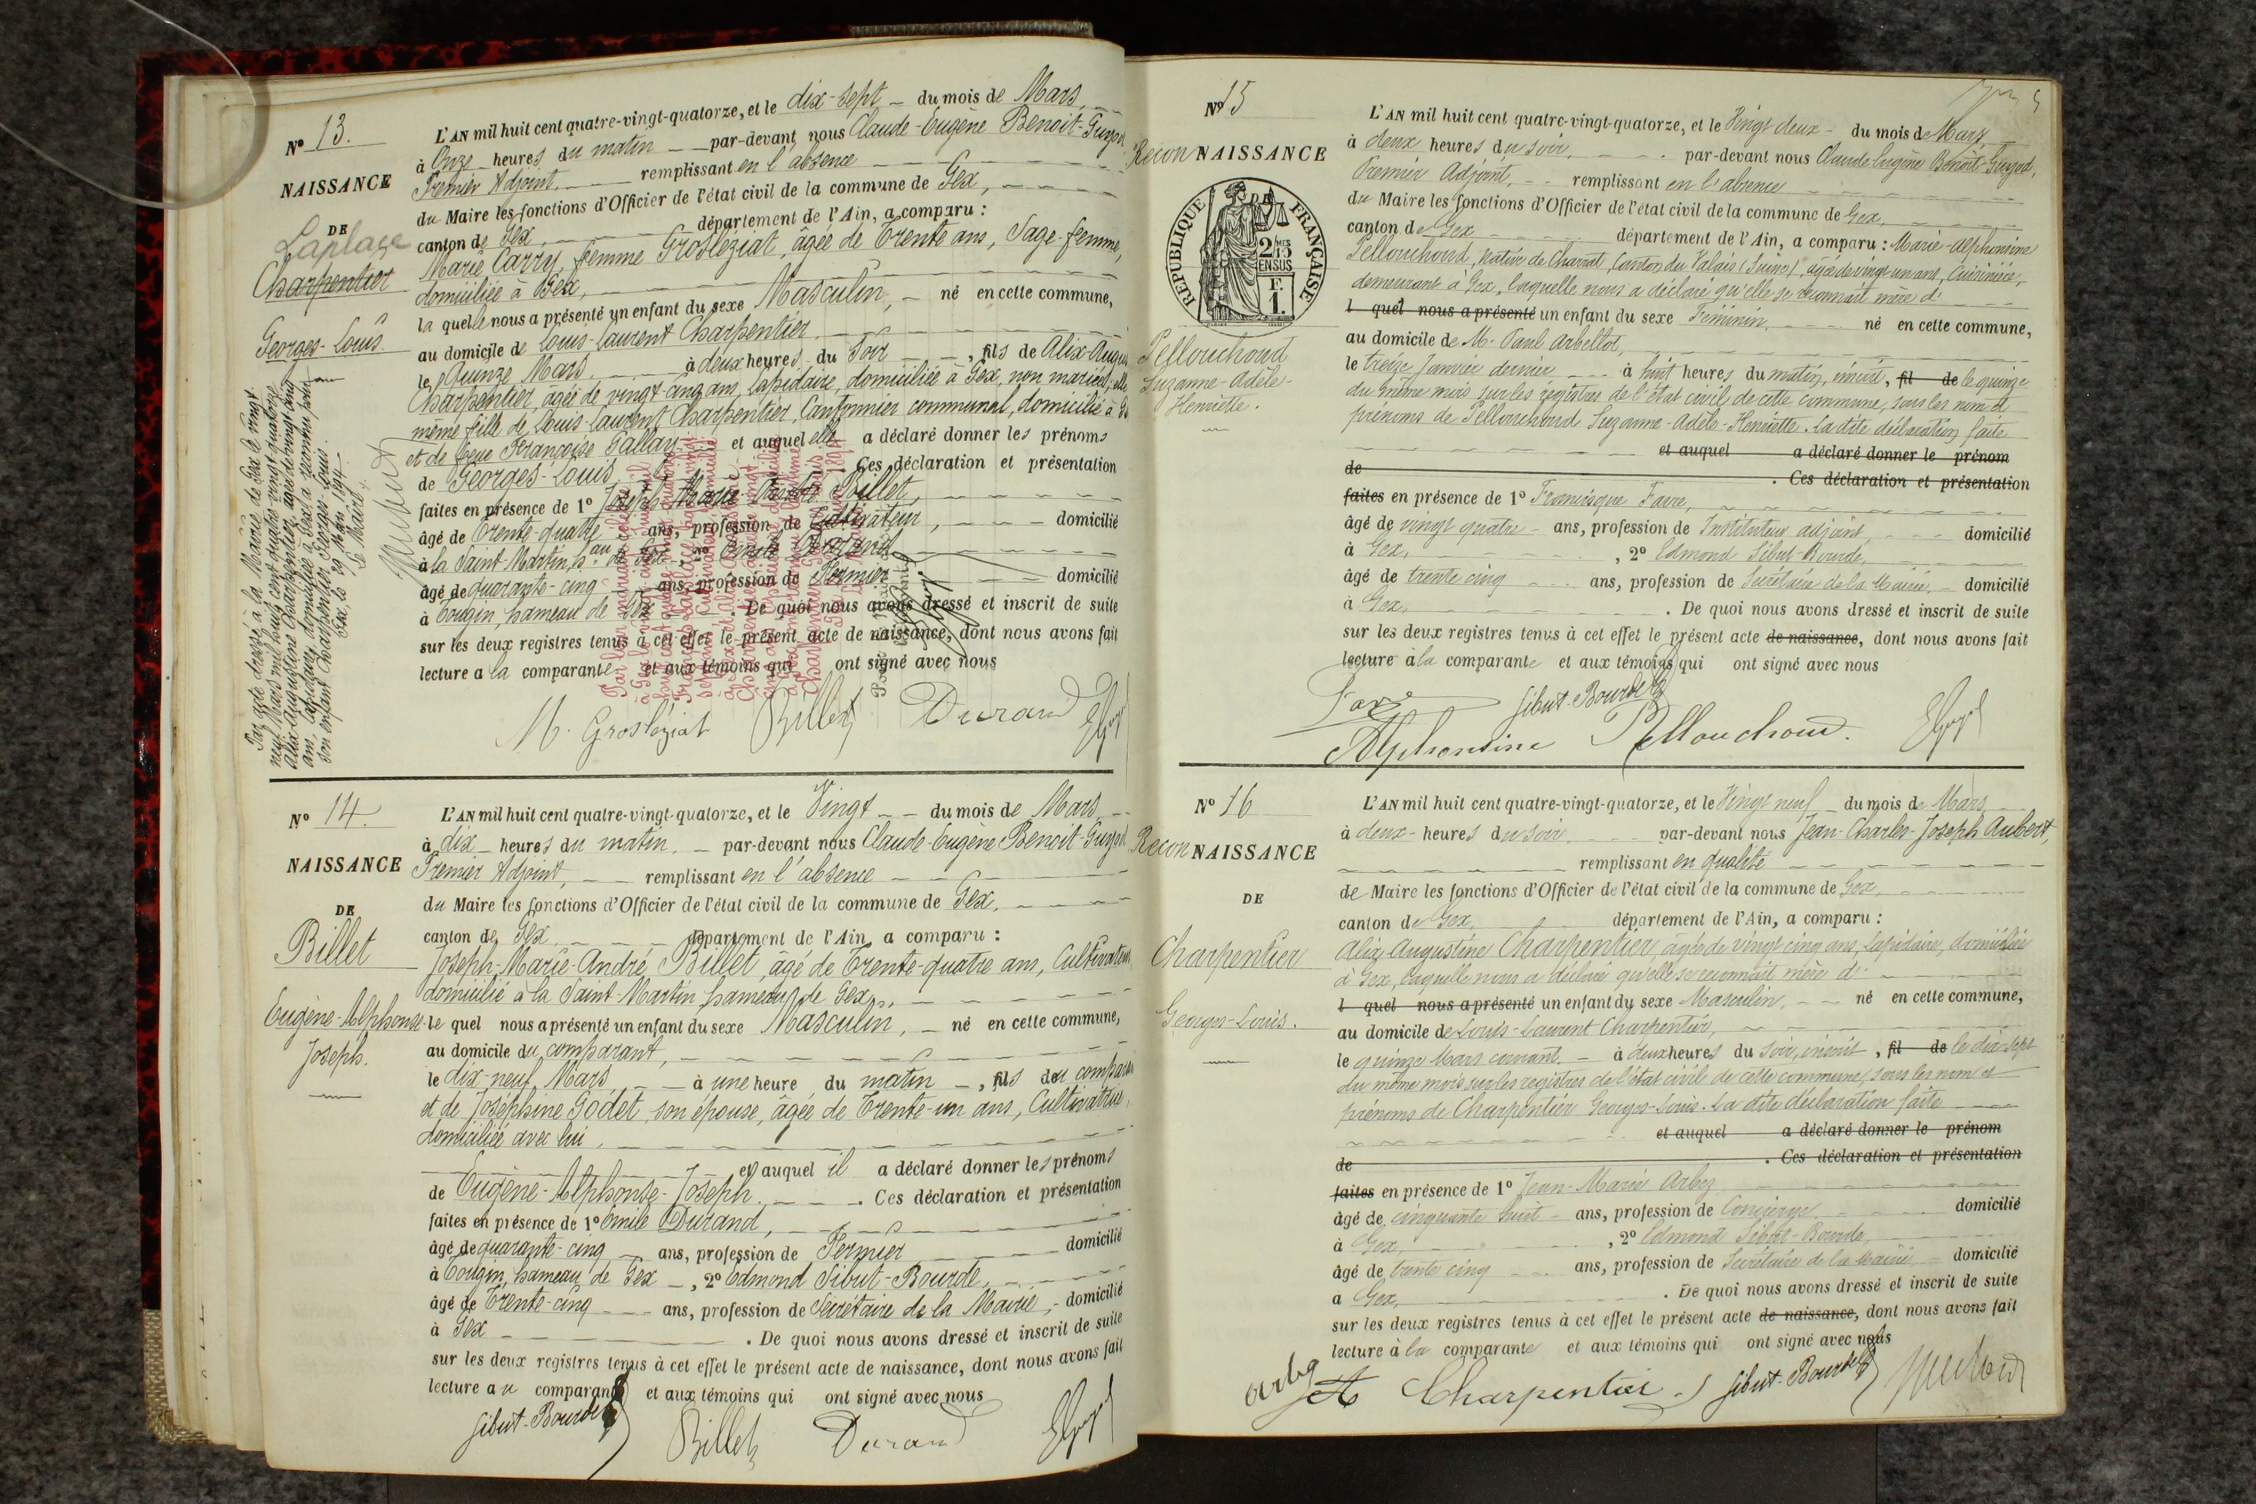 N° 13.
NAISSANCE
DE
Laplace
Charpentier
Georges-Louis
L'AN mil huit cent quatre-vingt-quatorze, et le dix-sept du mois de Mars,
à Onze heures du matin par-devant nous Claude-Eugène Benoit-Guyod
Premier Adjoint, remplissant en l'absence
du Maire les fonctions d'Officier de l'état civil de la commune de Gex,
canton de Gex, département de l'Ain, a comparu :
Marie Carry femme Grosléziat, âgée de Trente ans, Sage-femme,
domiciliée à Gex,
la quelle nous a présenté un enfant du sexe Masculin, né en cette commune,
au domicile de Louis-Laurent Charpentier,
le Quinze Mars à deux heures du Soir, fils de Alix-Augus
Charpentier, âgée de vingt-cinq ans, lapidaire, domiciliée à Gex, non mariée, elle
même fille de Louis-Laurent Charpentier, Cantonnier communal, domicilié à G
et de feue Françoise Pallay et auquel elle a déclaré donner les prénoms
de Georges-Louis, Ces déclaration et présentation
faites en présence de 1° Joseph Marie André Billet,
âgé de Trente-quatre ans, profession de Cultivateur, domicilié
à la Saint-Martin, hau de Gex 2° Emile Durand
âgé de quarante-cinq ans, profession de Fermier domicilié
à Tougin, hameau de Gex. De quoi nous avons dressé et inscrit de suite
sur les deux registres tenus à cet effet le présent acte de naissance, dont nous avons fait
lecture a la comparante et aux témoins qui ont signé avec nous
M. Grosléziat Billet Durand
Par acte dressé à la Mairie de Gex le vingt
neuf Mars mil huit cent quatre vingt quatorze
Alix Augustine Charpentier, âgée de vingt cinq
ans, lapidaire, domiciliée à Gex, a reconnu pour
son enfant Charpentier Georges-Louis.
Gex, le 29 Mars 1894
Le Maire,
N° 14.
NAISSANCE
DE
Billet
Eugène-Alphonse
Joseph.
L'AN mil huit cent quatre-vingt-quatorze, et le Vingt du mois de Mars
à dix heures du matin. par-devant nous Claude-Eugène Benoit-Guyod
Premier Adjoint, remplissant en l'absence
du Maire les fonctions d'Officier de l'état civil de la commune de Gex,
canton de Gex département de l'Ain, a comparu :
Joseph-Marie-André Billet, âgé de Trente-quatre ans, Cultivateur
domicilié à la Saint-Martin hameau de Gex,
le quel nous a présenté un enfant du sexe Masculin, né en cette commune,
au domicile du comparant,
le dix-neuf Mars à une heure du matin, fils du comparant
et de Joséphine Godet, son épouse, âgée de Trente-un ans, Cultivatrice,
domiciliée avec lui,
et auquel il a déclaré donner les prénoms
de Eugène-Alphonse-Joseph. Ces déclaration et présentation
faites en présence de 1° Emile Durand,
âgé de quarante-cinq ans, profession de Fermier domicilié
à Tougin, hameau de Gex, 2° Edmond Sibut-Bourde,
âgé de Trente-cinq ans, profession de Secrétaire de la Mairie, domicilié
à Gex. De quoi nous avons dressé et inscrit de suite
sur les deux registres tenus à cet effet le présent acte de naissance, dont nous avons fait
lecture au comparant et aux témoins qui ont signé avec nous
Sibut-Bourde Billet Durand
N° 15
Recon NAISSANCE
RÉPUBLIQUE FRANÇAISE
2/MES 13
EN SUS
F.
1.
Pellouchoud
Suzanne-Adèle-
Henriette.
L'AN mil huit cent quatre-vingt-quatorze, et le Vingt deux du mois de Mars
à deux heures du soir, par-devant nous Claude Eugène Benoit-Guyod,
Premier Adjoint, remplissant en l'absence
du Maire les fonctions d'Officier de l'état civil de la commune de Gex,
canton de Gex département de l'Ain, a comparu : Marie-Alphonsine
Pellouchoud, native de Charrat, Canton du Valais (Suisse), âgée de vingt un ans, Cuisinière,
demeurant à Gex, laquelle nous a déclaré qu'elle se reconnait mère de
l quel nous a présenté un enfant du sexe Féminin, né en cette commune,
au domicile de M. Paul Arbellot,
le treize Janvier dernier à huit heures du matin, inscrit, fil de le quinze
du même mois sur les registres de l'état civil de cette commune, sous les nom et
prénoms de Pellouchoud Suzanne-Adèle-Henriette. La dite déclaration faite
et auquel a déclaré donner le prénom
de . Ces déclaration et présentation
faites en présence de 1° Francisque Favre,
âgé de vingt quatre ans, profession de Instituteur adjoint, domicilié
à Gex, 2° Edmond Sibut-Bourde,
âgé de trente cinq ans, profession de Secrétaire de la Mairie, domicilié
à Gex. De quoi nous avons dressé et inscrit de suite
sur les deux registres tenus à cet effet le présent acte de naissance, dont nous avons fait
lecture à la comparante et aux témoins qui ont signé avec nous
Favre Sibut-Bourde
Alphonsine Pellouchoud.
N° 16
Recon NAISSANCE
DE
Charpentier
Georges-Louis.
L'AN mil huit cent quatre-vingt-quatorze, et le Vingt neuf du mois de Mars
à deux heures du soir par-devant nous Jean-Charles-Joseph Aubert,
remplissant en qualité
de Maire les fonctions d'Officier de l'état civil de la commune de Gex,
canton de Gex département de l'Ain, a comparu :
Alix Augustine Charpentier, âgée de vingt cinq ans, lapidaire, domiciliée
à Gex, laquelle nous a déclaré qu'elle se reconnait mère de
l quel nous a présenté un enfant du sexe Masculin, né en cette commune,
au domicile de Louis-Laurent Charpentier,
le quinze Mars courant, à deux heures du soir, inscrit, fil de le dix-sept
du même mois sur les registres de l'état civil de cette commune, sous les nom et
prénoms de Charpentier Georges-Louis. La dite déclaration faite
et auquel a déclaré donner le prénom
de . Ces déclaration et présentation
faites en présence de 1° Jean-Marie Arbez
âgé de cinquante huit ans, profession de Concierge domicilié
à Gex, 2° Edmond Sibut-Bourde,
âgé de trente cinq ans, profession de Secrétaire de la Mairie domicilié
à Gex, . De quoi nous avons dressé et inscrit de suite
sur les deux registres tenus à cet effet le présent acte de naissance, dont nous avons fait
lecture à la comparante et aux témoins qui ont signé avec nous
A Charpentier Sibut-Bourde